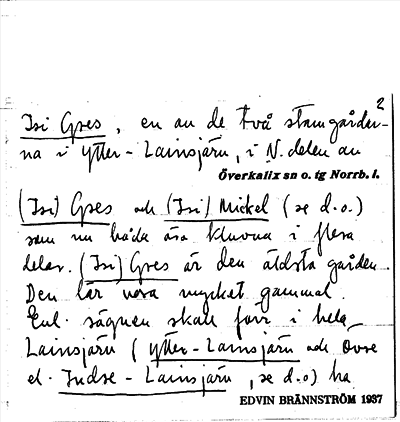 2
Isi Gres, en av de två stamgårdar-
na i Ytter-Lainsjärv, i N. delen av
Överkalix sn o. tg Norrb. l.
(Isi) Gres och (Isi) Mickel (se d.o.)
som nu båda äro kluvna i flera
delar. (Isi) Gres är den äldsta gården.
Den lär vara mycket gammal.
Enl. sägnen skall förr i hela
Lainsjärv (Ytter-Lainsjärv och Övre
el. Indre-Lainsjärv, se d.o) ha
EDVIN BRÄNNSTRÖM 1937